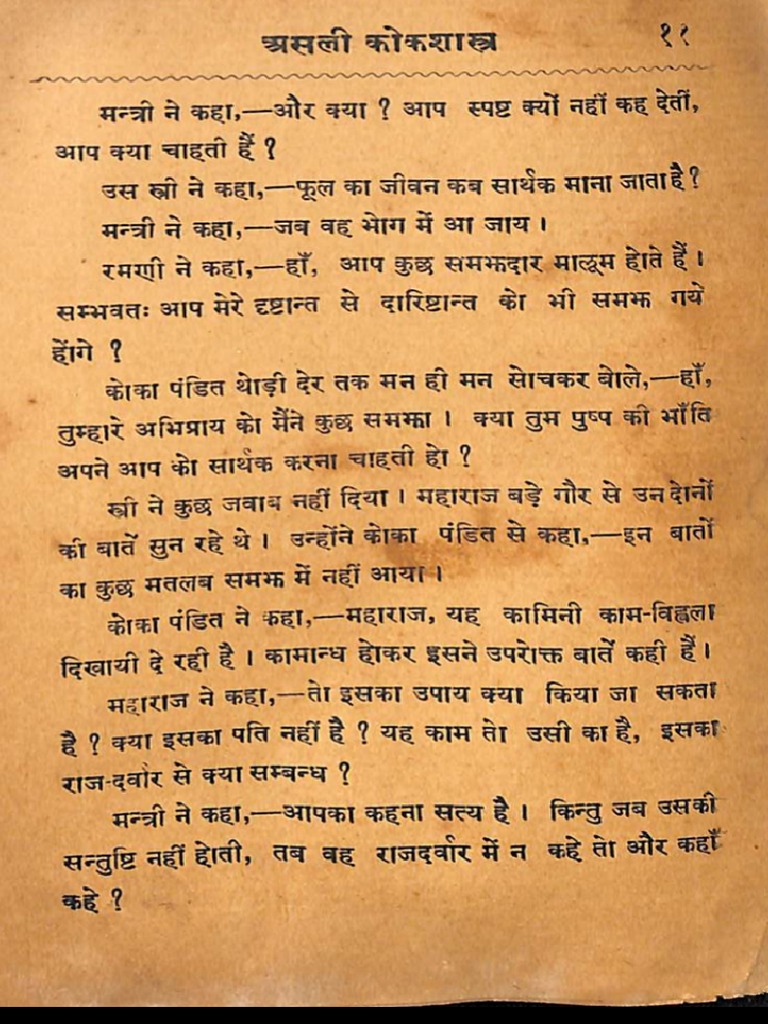 असली कोकशास्त्र ११
मन्त्री ने कहा,—और क्या ? आप स्पष्ट क्यों नहीं कह देतीं,
आप क्या चाहती हैं ?
उस स्त्री ने कहा,—फूल का जीवन कब सार्थक माना जाता है ?
मन्त्री ने कहा,—जब वह भोग में आ जाय ।
रमणी ने कहा,—हाँ, आप कुछ समझदार मालूम होते हैं ।
सम्भवतः आप मेरे दृष्टान्त से दारिष्टान्त को भी समझ गये
होंगे ?
कोका पंडित थोड़ी देर तक मन ही मन सोचकर बोले,—हाँ,
तुम्हारे अभिप्राय को मैंने कुछ समझा । क्या तुम पुष्प की भाँति
अपने आप को सार्थक करना चाहती हो ?
स्त्री ने कुछ जवाब नहीं दिया । महाराज बड़े गौर से उन दोनों
की बातें सुन रहे थे । उन्होंने कोका पंडित से कहा,—इन बातों
का कुछ मतलब समझ में नहीं आया ।
कोका पंडित ने कहा,—महाराज, यह कामिनी काम-विह्वला
दिखायी दे रही है । कामान्ध होकर इसने उपरोक्त बातें कही हैं ।
महाराज ने कहा,—तो इसका उपाय क्या किया जा सकता
है ? क्या इसका पति नहीं है ? यह काम तो उसी का है, इसका
राज-दर्वार से क्या सम्बन्ध ?
मन्त्री ने कहा,—आपका कहना सत्य है । किन्तु जब उसकी
सन्तुष्टि नहीं होती, तब वह राजदर्वार में न कहे तो और कहाँ
कहे ?